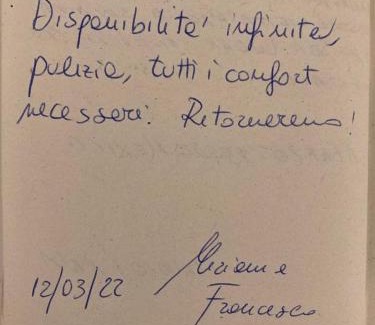 Disponibilità infinita,
pulizia, tutti i confort
necesseri. Retorneremo!
12/03/22
Francesco